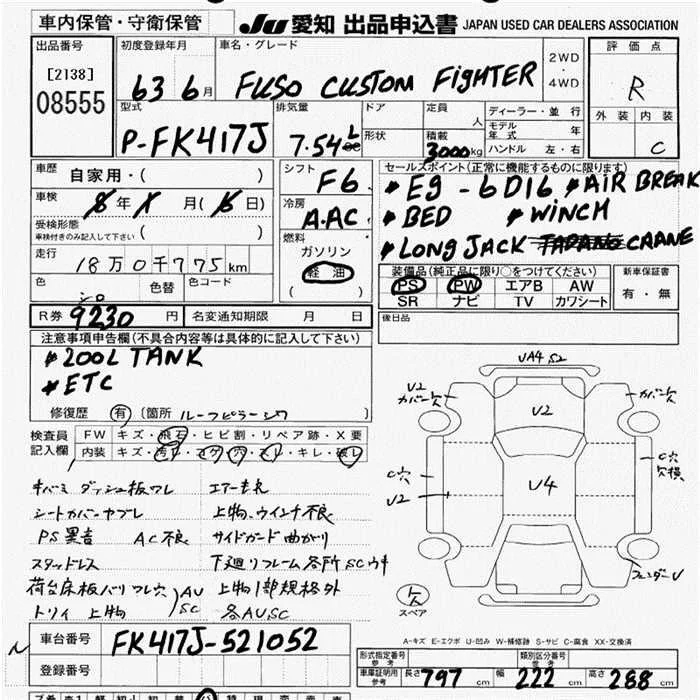 車内保管・守衛保管 JU 愛知 出品申込書 JAPAN USED CAR DEALERS ASSOCIATION
出品番号 初度登録年月 車名・グレード 2WD・4WD 評価点
[2138] 08555 63 6月 FUSO CUSTOM FIGHTER R
型式 排気量 ドア 定員 人 ディーラー・並行 外装 内装
P-FK417J 7.54 L 形状 積載 3000kg モデル年式 年 C
ハンドル 左・右
車歴 自家用・( ) シフト F6 セールスポイント(正常に機能するものに限ります)
車検 年 月( 日) 冷房 A.AC * Eg - 6D16 * AIR BREAK
受検形態 車検付きのみ記入して下さい ( ) 燃料 * BED * WINCH
走行 18万0千775km ガソリン 軽油 ( ) * LONG JACK CRANE
色 シロ 色替 色コード 装備品(純正品に限り○をつけてください) 新車保証書
PS PW エアB AW 有・無
SR ナビ TV カワシート
R券 9230 円 名変通知期限 月 日 後日品
注意事項申告欄(不具合内容等は具体的に記入して下さい)
* 200L TANK
* ETC
修復歴 有 [箇所 ルーフピラーシワ ]
検査員記入欄 FW キズ・飛石・ヒビ割・リペア跡・X要
内装 キズ・汚レ・コゲ・穴・スレ・キレ・破レ
キバミ ダッシュ板ワレ エアーモレ
シートカバーヤブレ 上物、ウインチ不良
PS異音 AC不良 サイドガード曲がり
スタッドレス 下廻りフレーム各所SCウキ
荷台床板バリワレ穴 AU SC 上物1部規格外
トリイ 上物 各AUSC
UA4 S2
U2 カバー欠
U2
カバー欠
C穴
U2
U4
C穴
フェンダーU
欠
スペア
A-キズ E-エクボ U-凹み W-補修跡 S-サビ C-腐食 XX-交換済
車台番号 FK417J-521052
登録番号
形式指定番号 参考 類別区分番号 参考
車庫証明用 参考 長さ 797 cm 幅 222 cm 高さ 288 cm